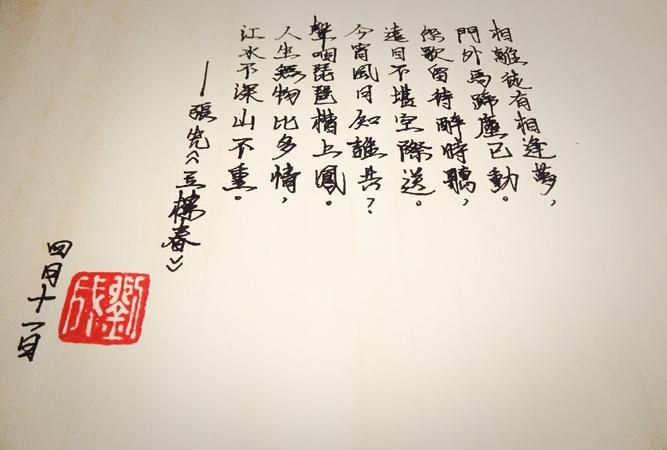 相離徒有相逢夢，
門外馬蹄塵已動。
怨歌留待醉時聽，
遠目不堪空際送。
今宵風月知誰共？
聲咽琵琶槽上鳳。
人生無物比多情，
江水不深山不重。
——張先《玉樓春》
四月十一日
劉成